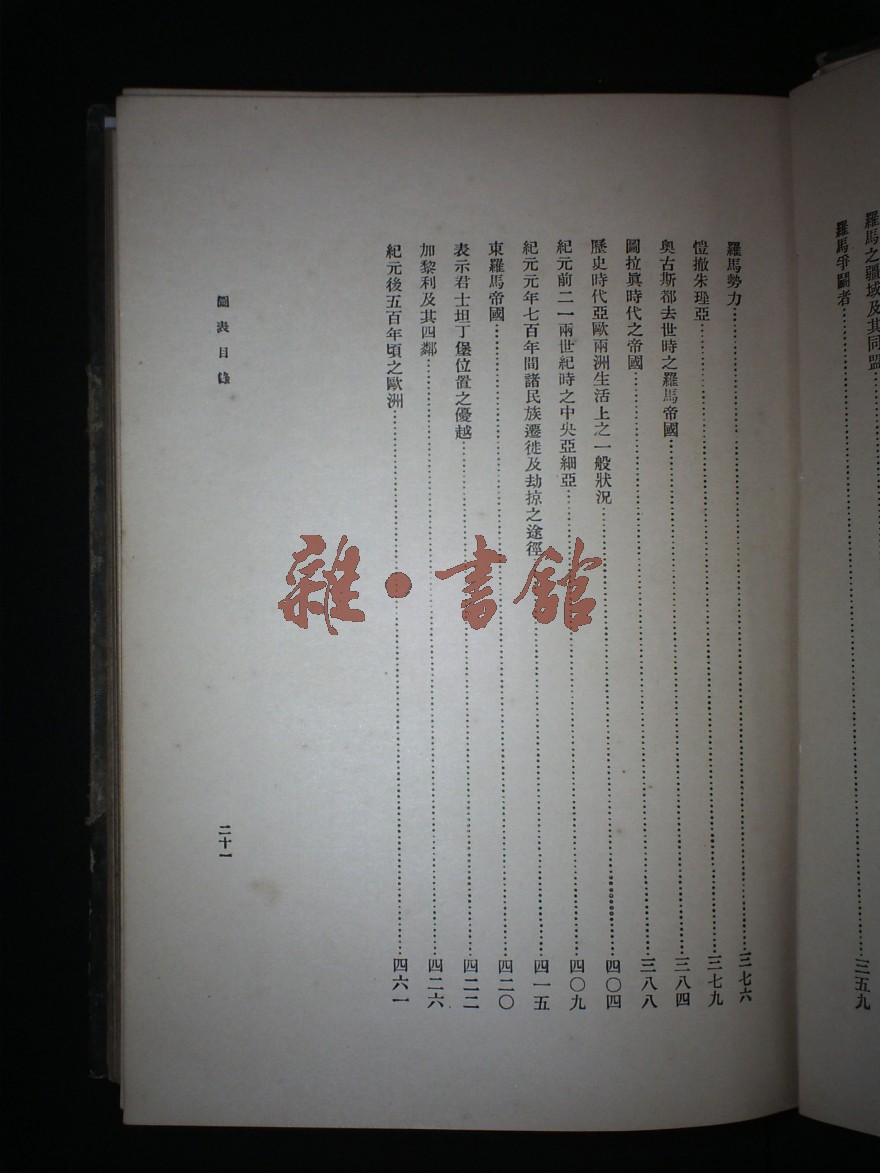 羅馬之疆域及其同盟
羅馬爭鬪者……三五九
羅馬勢力……三七六
愷撤朱理亞……三七九
奧古斯都去世時之羅馬帝國……三八四
圖拉眞時代之帝國……三八八
歷史時代亞歐兩洲生活上之一般狀況……四〇四
紀元前二一兩世紀時之中央亞細亞……四〇九
紀元元年七百年間諸民族遷徙及劫掠之途徑……四一五
東羅馬帝國……四二〇
表示君士坦丁堡位置之優越……四二二
加黎利及其四鄰……四二六
紀元後五百年頃之歐洲……四六一
圖表目錄
二十一
雜·書館